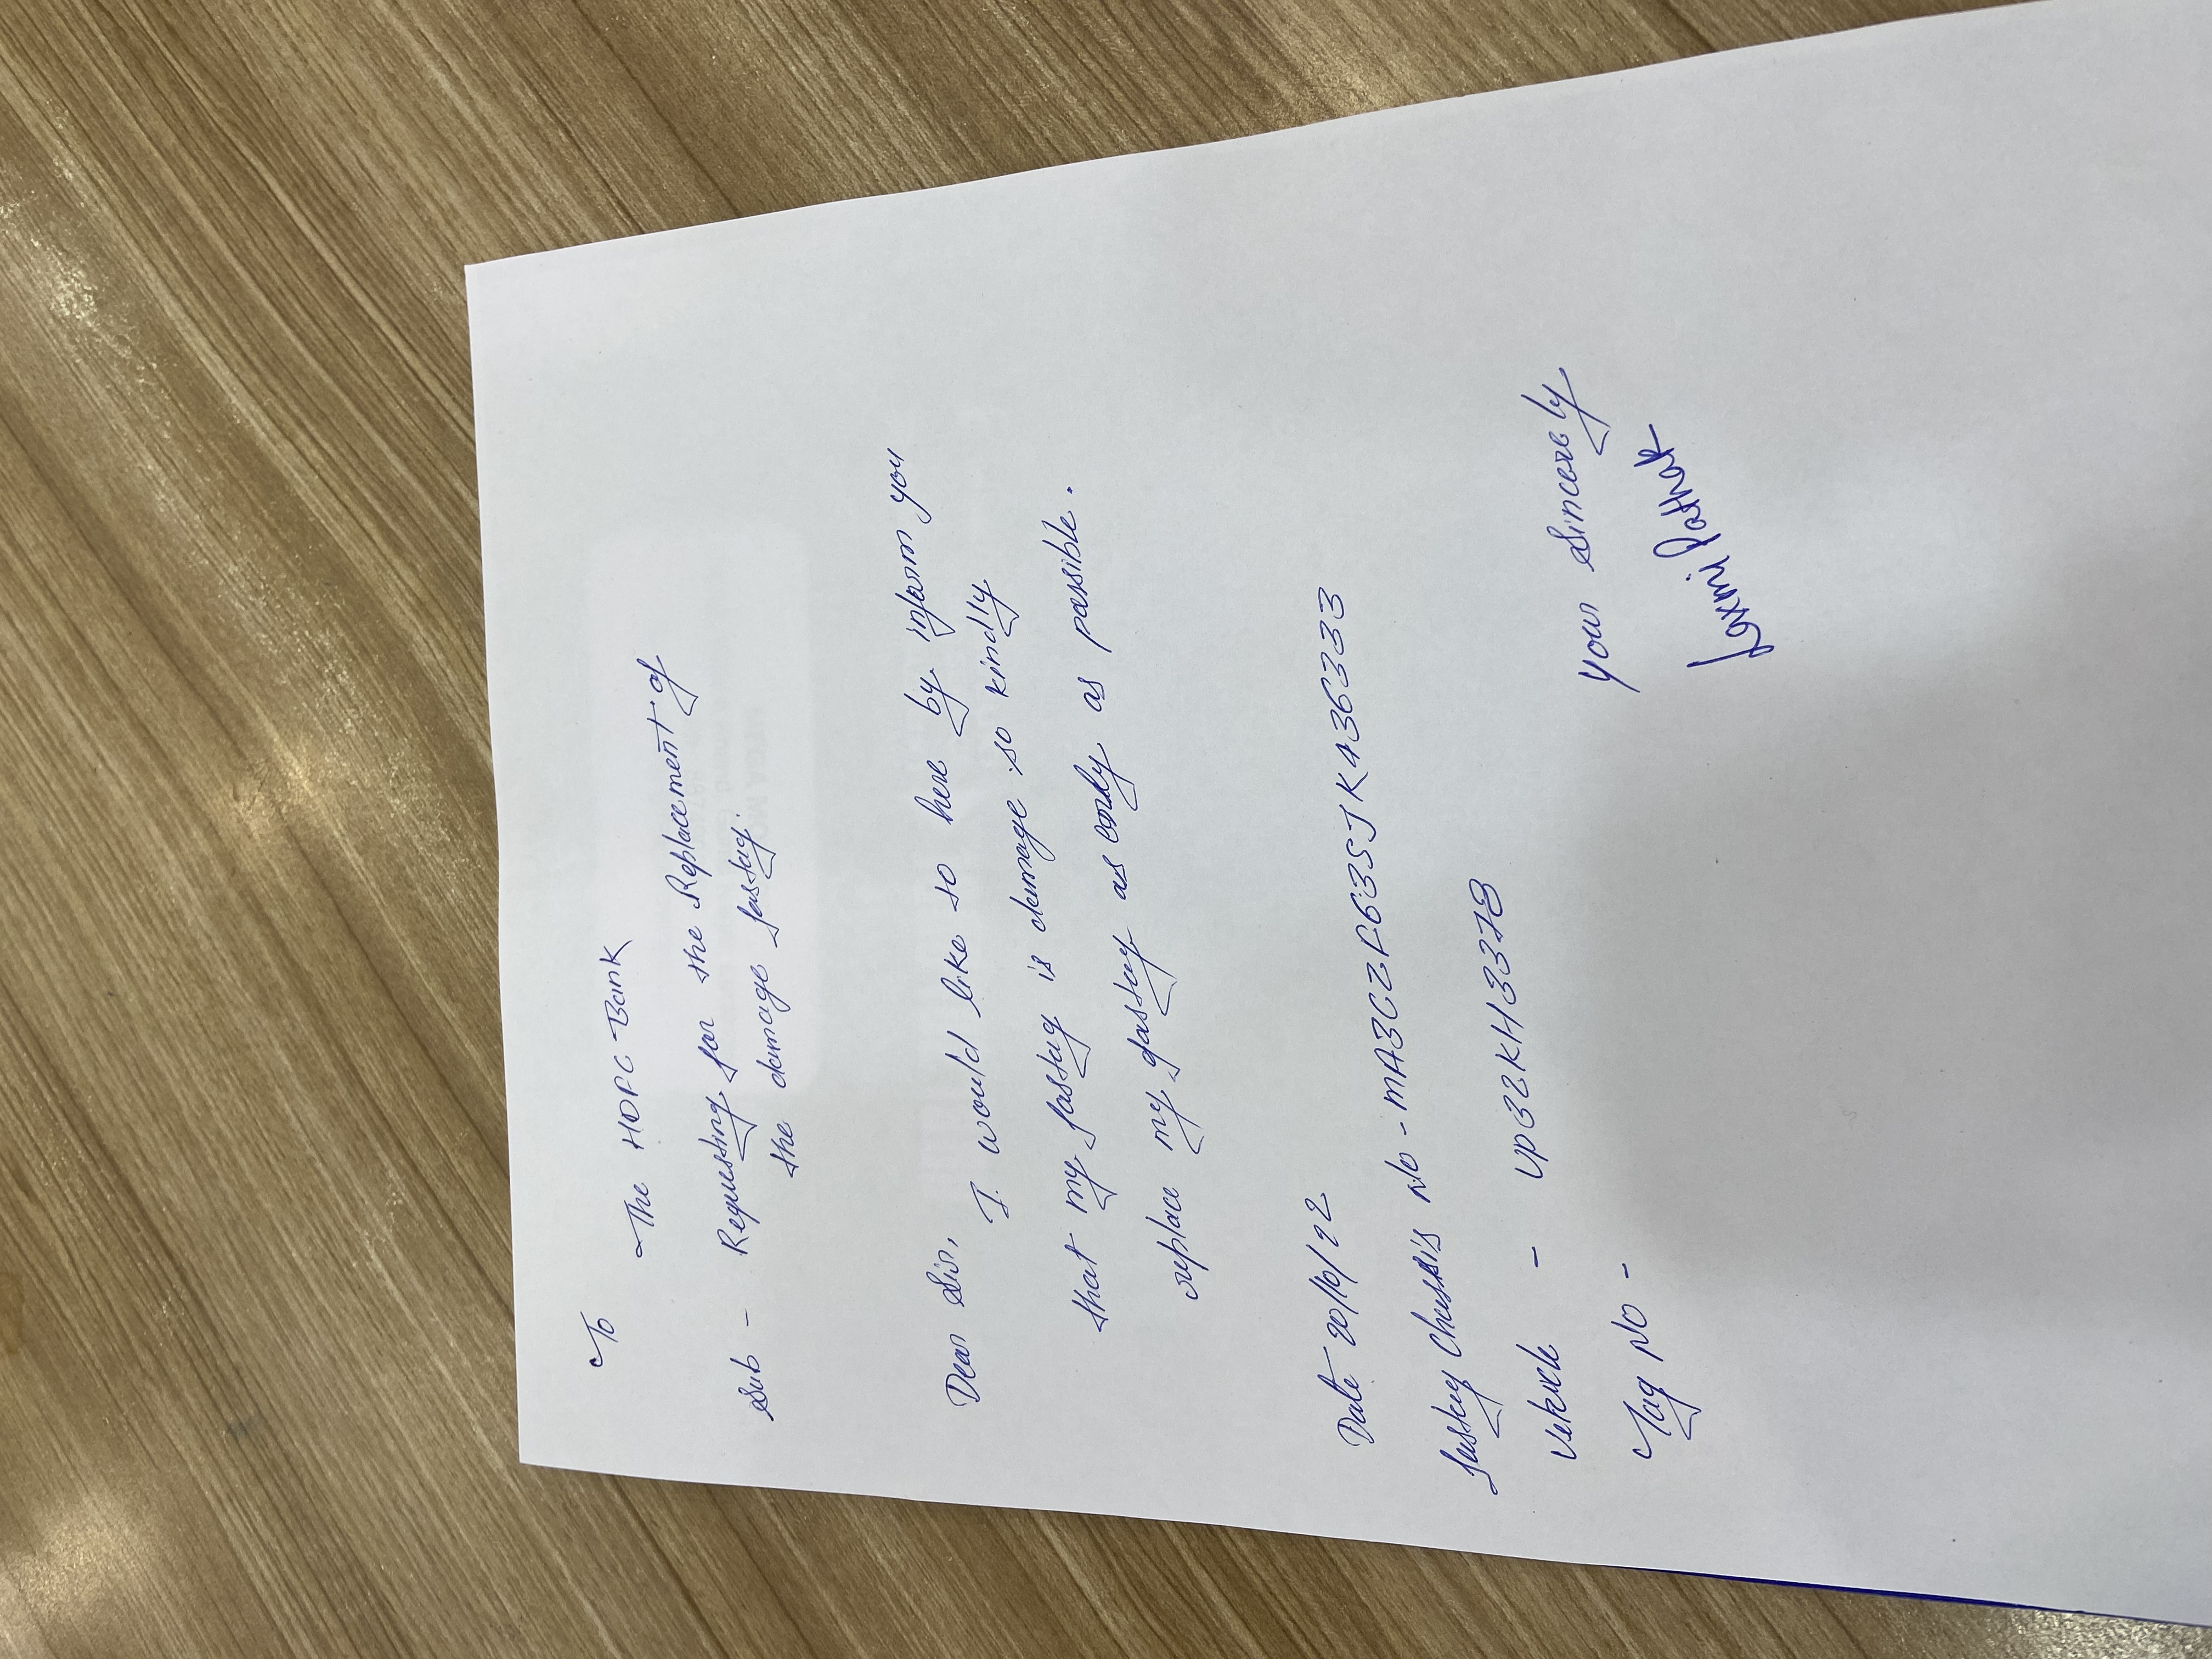 To
The HDFC Bank
Sub - Requesting for the Replacement of
the damage fastag.
Dear Sir,
I would like so here by inform you
that my fastag is damage so kindly
replace my fastag as early as possible.
Date 20/10/22
fastag Chassis No - MA3CZF63SJK436333
Vehicle - UP32KH3378
Tag No -
your sincerely
Laxmi Pathak